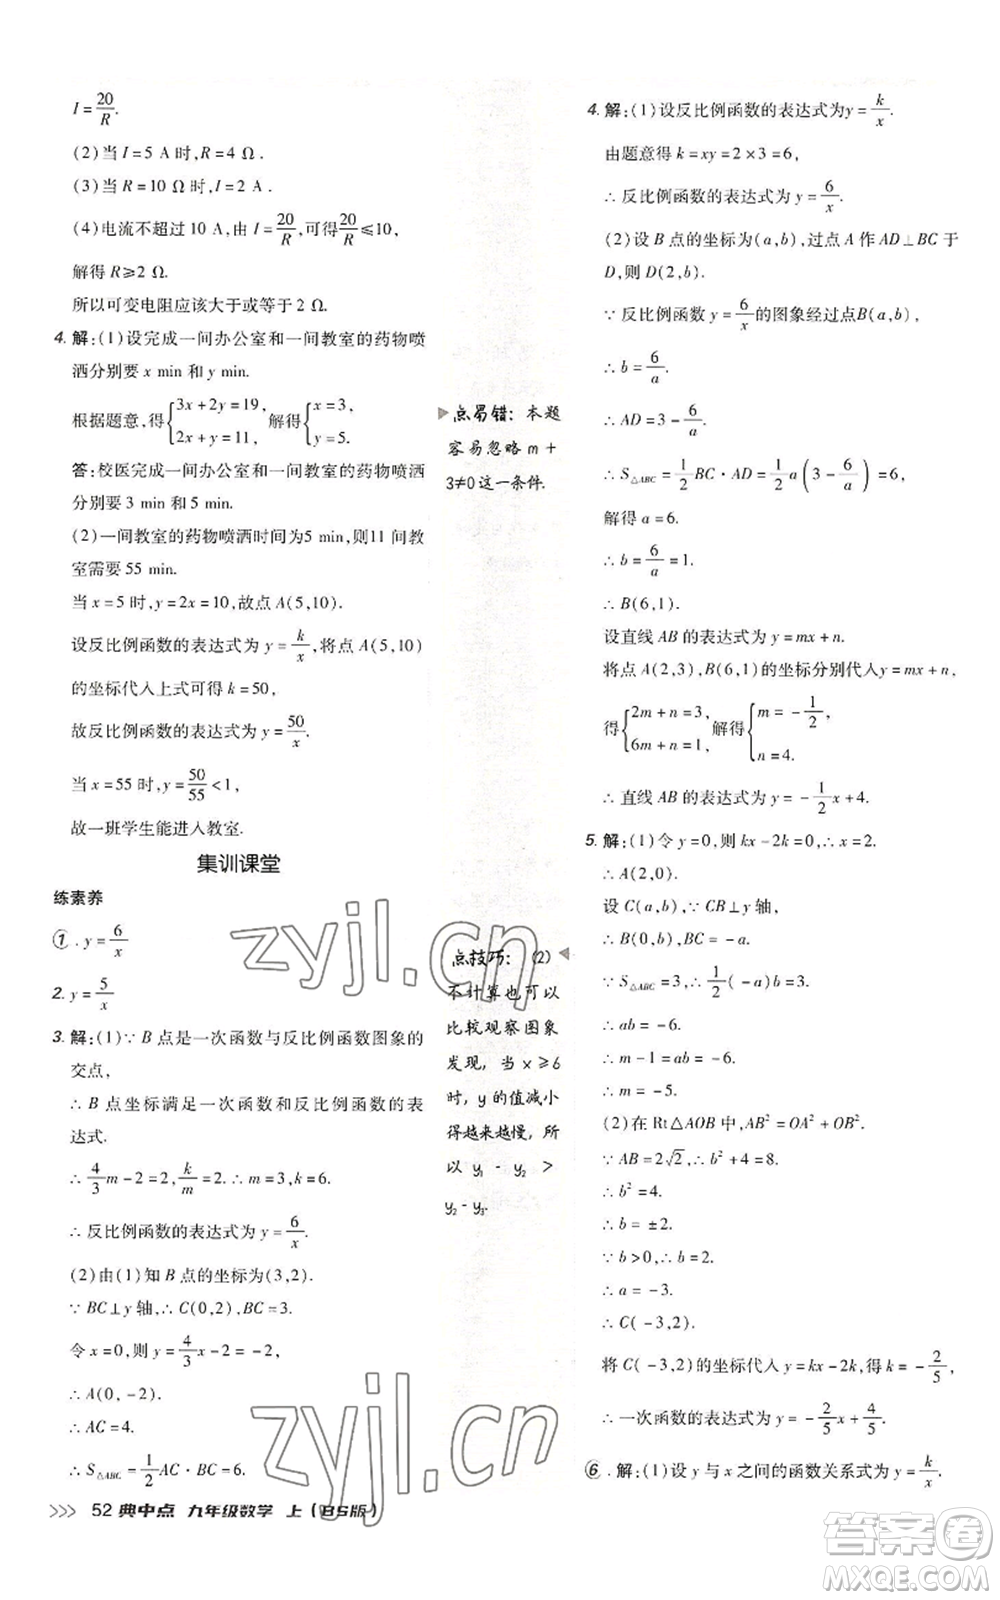 I=20/R.
(2)当 I=5 A 时,R=4 Ω.
(3)当 R=10 Ω 时,I=2 A.
(4)电流不超过 10 A,由 I=20/R,可得20/R≤10,
解得 R≥2 Ω.
所以可变电阻应该大于或等于 2 Ω.
4. 解:(1)设完成一间办公室和一间教室的药物喷
洒分别要 x min 和 y min.
根据题意,得{3x+2y=19, 2x+y=11, 解得{x=3, y=5.
答:校医完成一间办公室和一间教室的药物喷洒
分别要 3 min 和 5 min.
(2)一间教室的药物喷洒时间为5 min,则11 间教
室需要 55 min.
当 x=5 时,y=2x=10,故点 A(5,10).
设反比例函数的表达式为 y=k/x,将点 A(5,10)
的坐标代入上式可得 k=50,
故反比例函数的表达式为 y=50/x.
当 x=55 时,y=50/55<1,
故一班学生能进入教室.
集训课堂
练素养
1. y=6/x
2. y=5/x
3. 解:(1)∵B 点是一次函数与反比例函数图象的
交点,
∴B 点坐标满足一次函数和反比例函数的表
达式.
∴4/3m-2=2,k/m=2.∴m=3,k=6.
∴反比例函数的表达式为 y=6/x.
(2)由(1)知 B 点的坐标为(3,2).
∵BC⊥y 轴,∴C(0,2),BC=3.
令 x=0,则 y=4/3x-2=-2,
∴A(0,-2).
∴AC=4.
∴S△ABC=1/2AC·BC=6.
52 典中点 九年级数学 上(BS版)
点易错:本题
容易忽略 m+
3≠0这一条件.
点技巧:(2)
不计算也可以
比较观察图象
发现,当 x≥6
时,y 的值减小
得越来越慢,所
以 y₁-y₂>
y₂-y₃.
4. 解:(1)设反比例函数的表达式为y=k/x.
由题意得 k=xy=2×3=6,
∴反比例函数的表达式为 y=6/x.
(2)设 B 点的坐标为(a,b),过点 A 作 AD⊥BC于
D,则 D(2,b).
∵反比例函数 y=6/x的图象经过点B(a,b),
∴b=6/a.
∴AD=3-6/a.
∴S△ABC=1/2BC·AD=1/2a(3-6/a)=6,
解得 a=6.
∴b=6/a=1.
∴B(6,1).
设直线 AB 的表达式为 y=mx+n.
将点 A(2,3),B(6,1)的坐标分别代入y=mx+n,
得{2m+n=3, 6m+n=1, 解得{m=-1/2, n=4.
∴直线 AB 的表达式为 y=-1/2x+4.
5. 解:(1)令 y=0,则 kx-2k=0,∴x=2.
∴A(2,0).
设 C(a,b),∵CB⊥y 轴,
∴B(0,b),BC=-a.
∵S△ABC=3,∴1/2(-a)b=3.
∴ab=-6.
∴m-1=ab=-6.
∴m=-5.
(2)在 Rt△AOB 中,AB²=OA²+OB².
∵AB=2√2,∴b²+4=8.
∴b²=4.
∴b=±2.
∵b>0,∴b=2.
∴a=-3.
∴C(-3,2).
将 C(-3,2)的坐标代入 y=kx-2k,得 k=-2/5,
∴一次函数的表达式为 y=-2/5x+4/5.
6. 解:(1)设 y 与 x 之间的函数关系式为 y=k/x,
zyjl.cn
zyjl.cn
答案圈
MXQE.COM